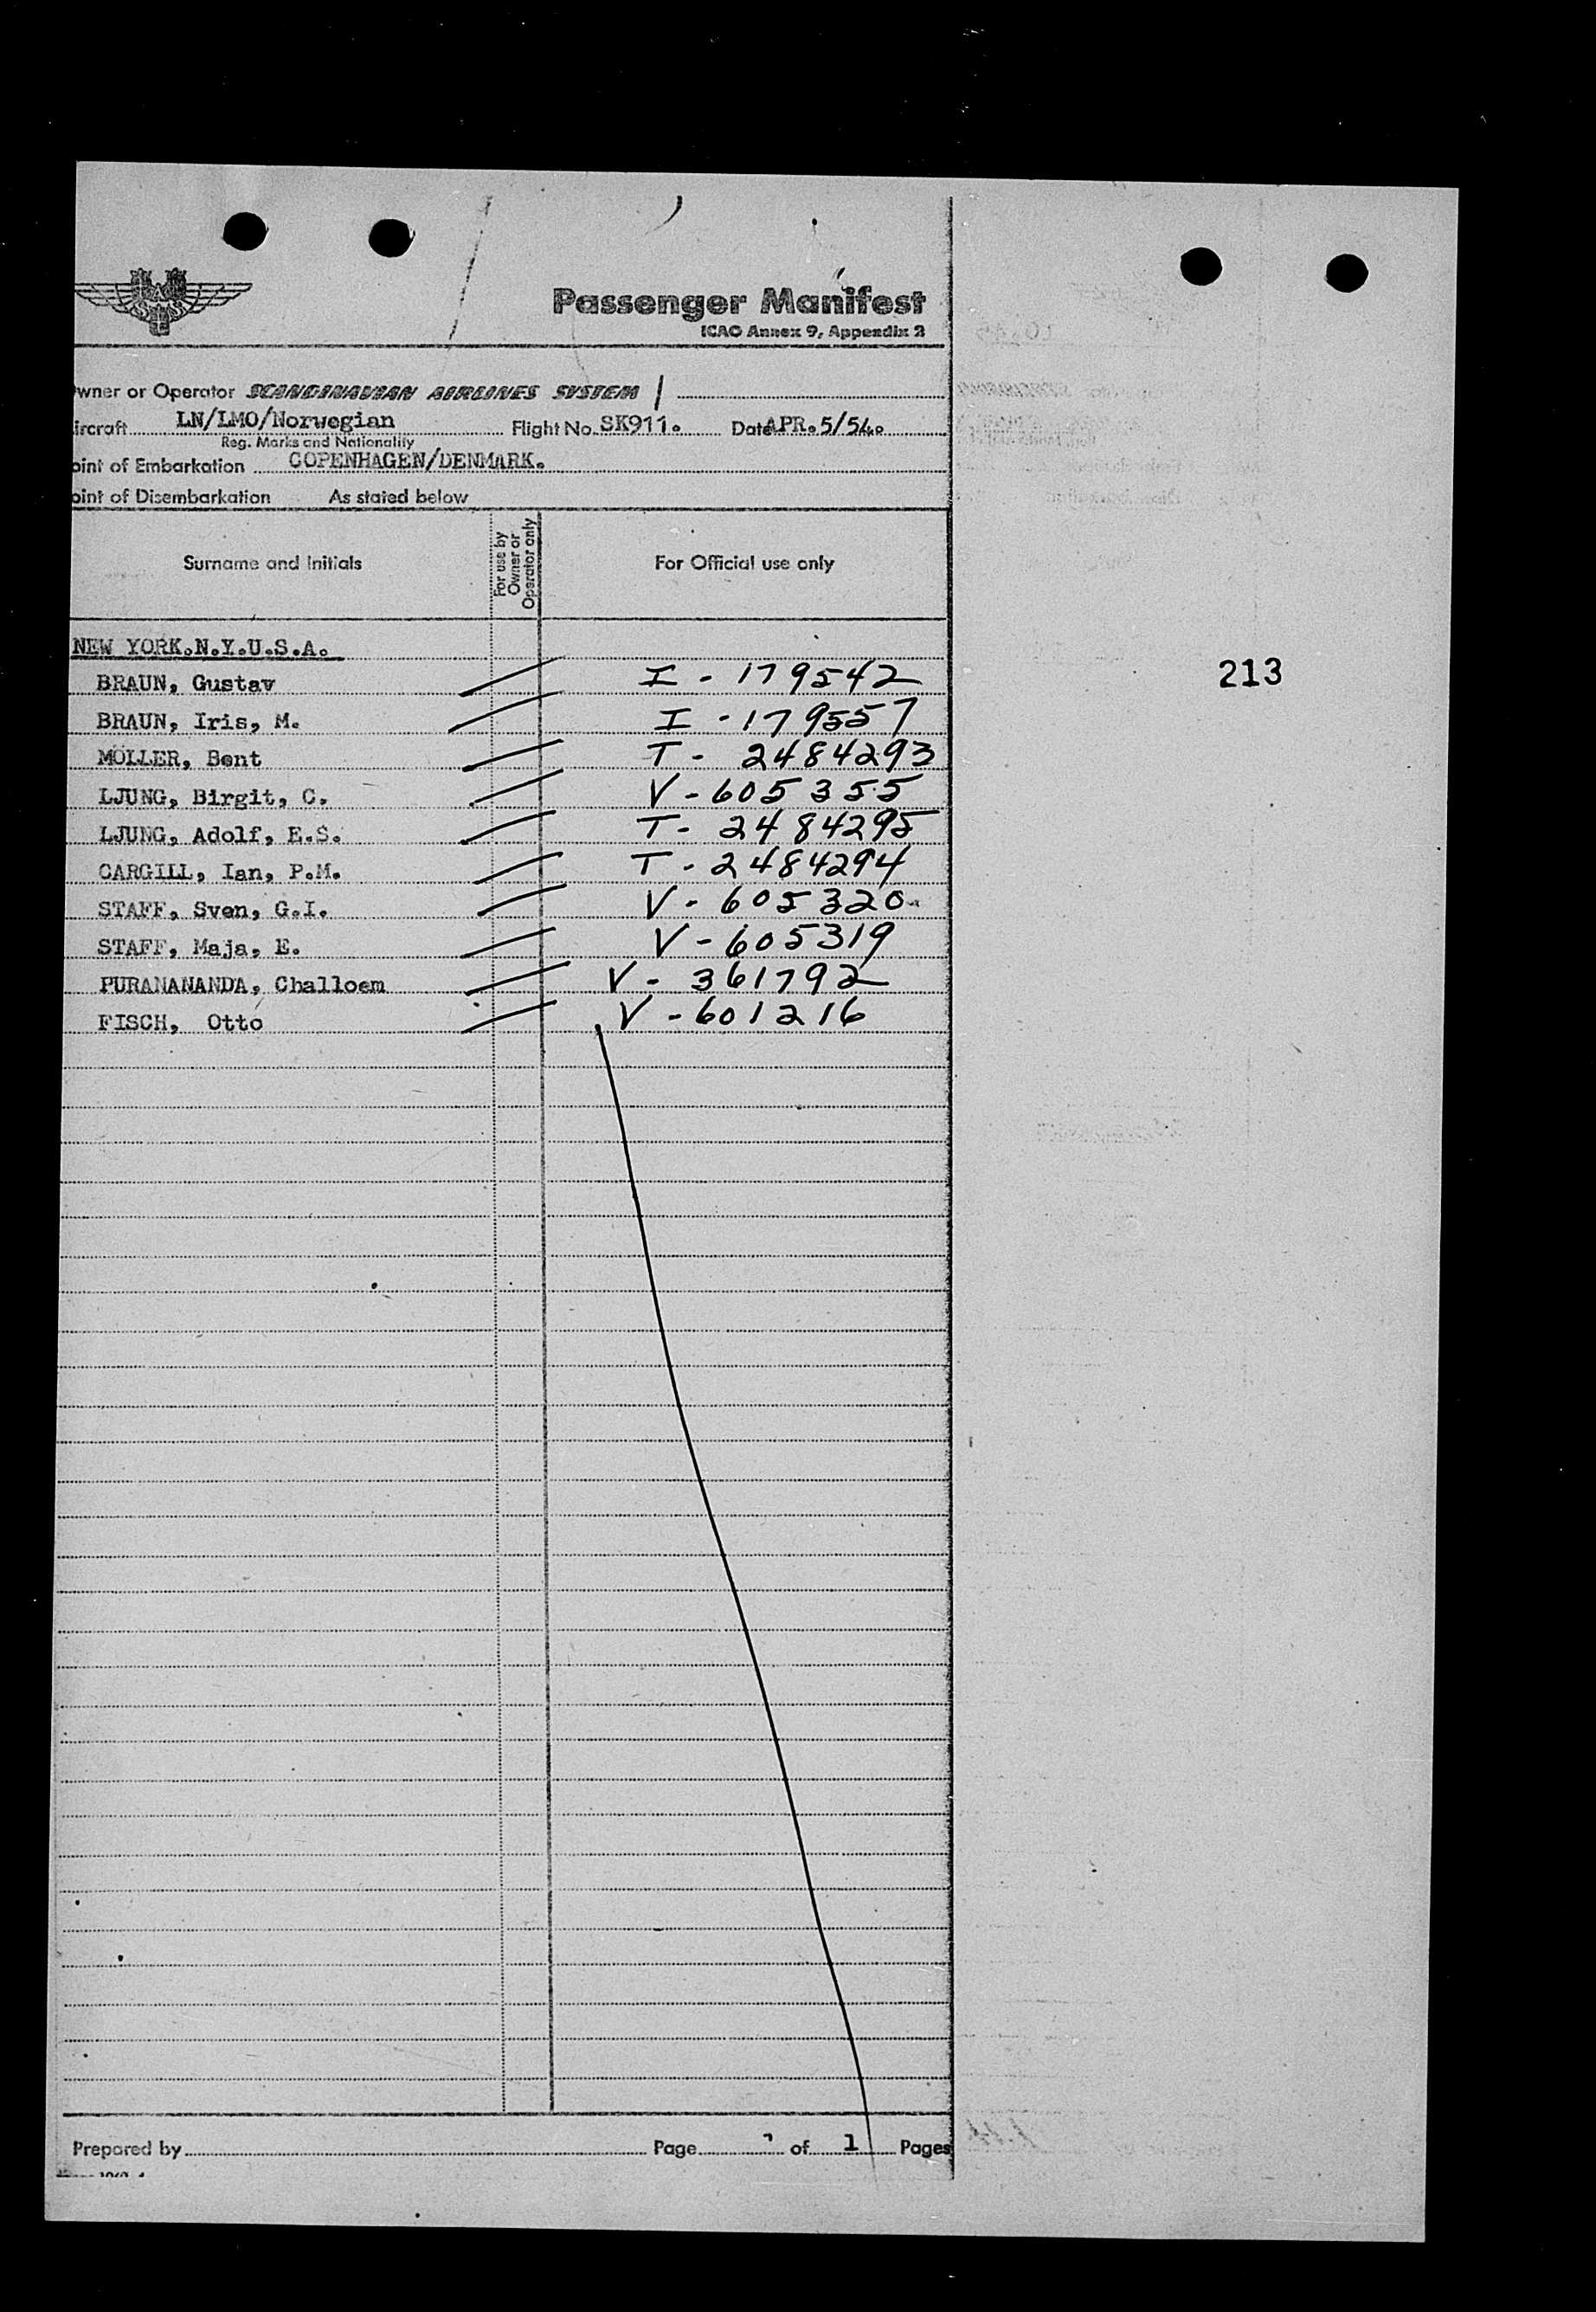 SAS
Passenger Manifest
ICAO Annex 9, Appendix 2
wner or Operator SCANDINAVIAN AIRLINES SYSTEM
ircraft LN/LMO/Norwegian Flight No. SK911. Date APR.5/54.
Reg. Marks and Nationality
oint of Embarkation COPENHAGEN/DENMARK.
oint of Disembarkation As stated below
Surname and Initials For use by Owner or Operator only For Official use only
NEW YORK.N.Y.U.S.A.
BRAUN, Gustav I - 179542
213
BRAUN, Iris, M. I - 179557
MÖLLER, Bent T - 2484293
LJUNG, Birgit, C. V - 605355
LJUNG, Adolf, E.S. T - 2484295
CARGILL, Ian, P.M. T - 2484294
STAFF, Sven, G.I. V - 605320
STAFF, Maja, E. V - 605319
PURANANANDA, Challoem V - 361792
FISCH, Otto V - 601216
Prepared by Page of 1 Pages